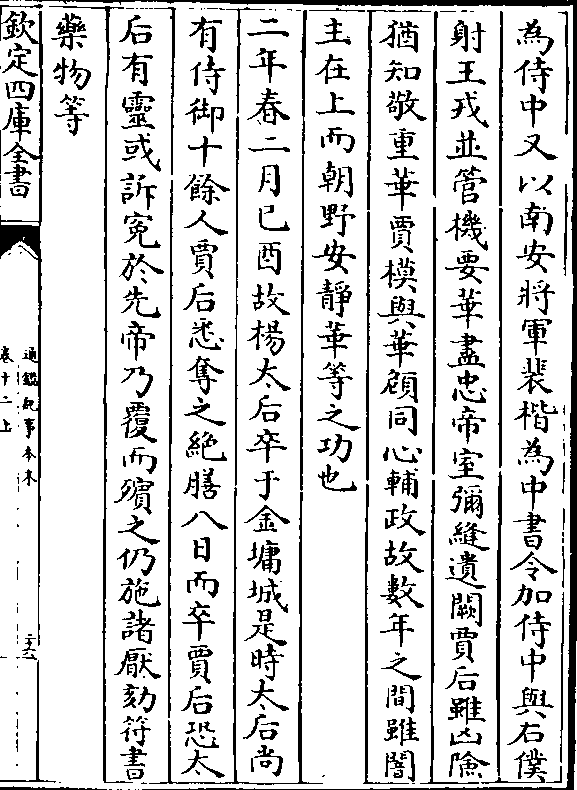 為侍中又以南安將軍裴楷為中書令加侍中與右僕
射王戎並管機要華盡忠帝室彌縫遺闕賈后雖凶險
猶知敬重華賈模與華頠同心輔政故數年之間雖闇
主在上而朝野安靜華等之功也
二年春二月已酉故楊太后卒于金墉城是時太后尚
有侍御十餘人賈后悉奪之絶膳八日而卒賈后恐太
后有靈或訴寃於先帝乃覆而殯之仍施諸厭劾符書
藥物等
欽定四庫全書
通鑑紀事本末
卷十二上